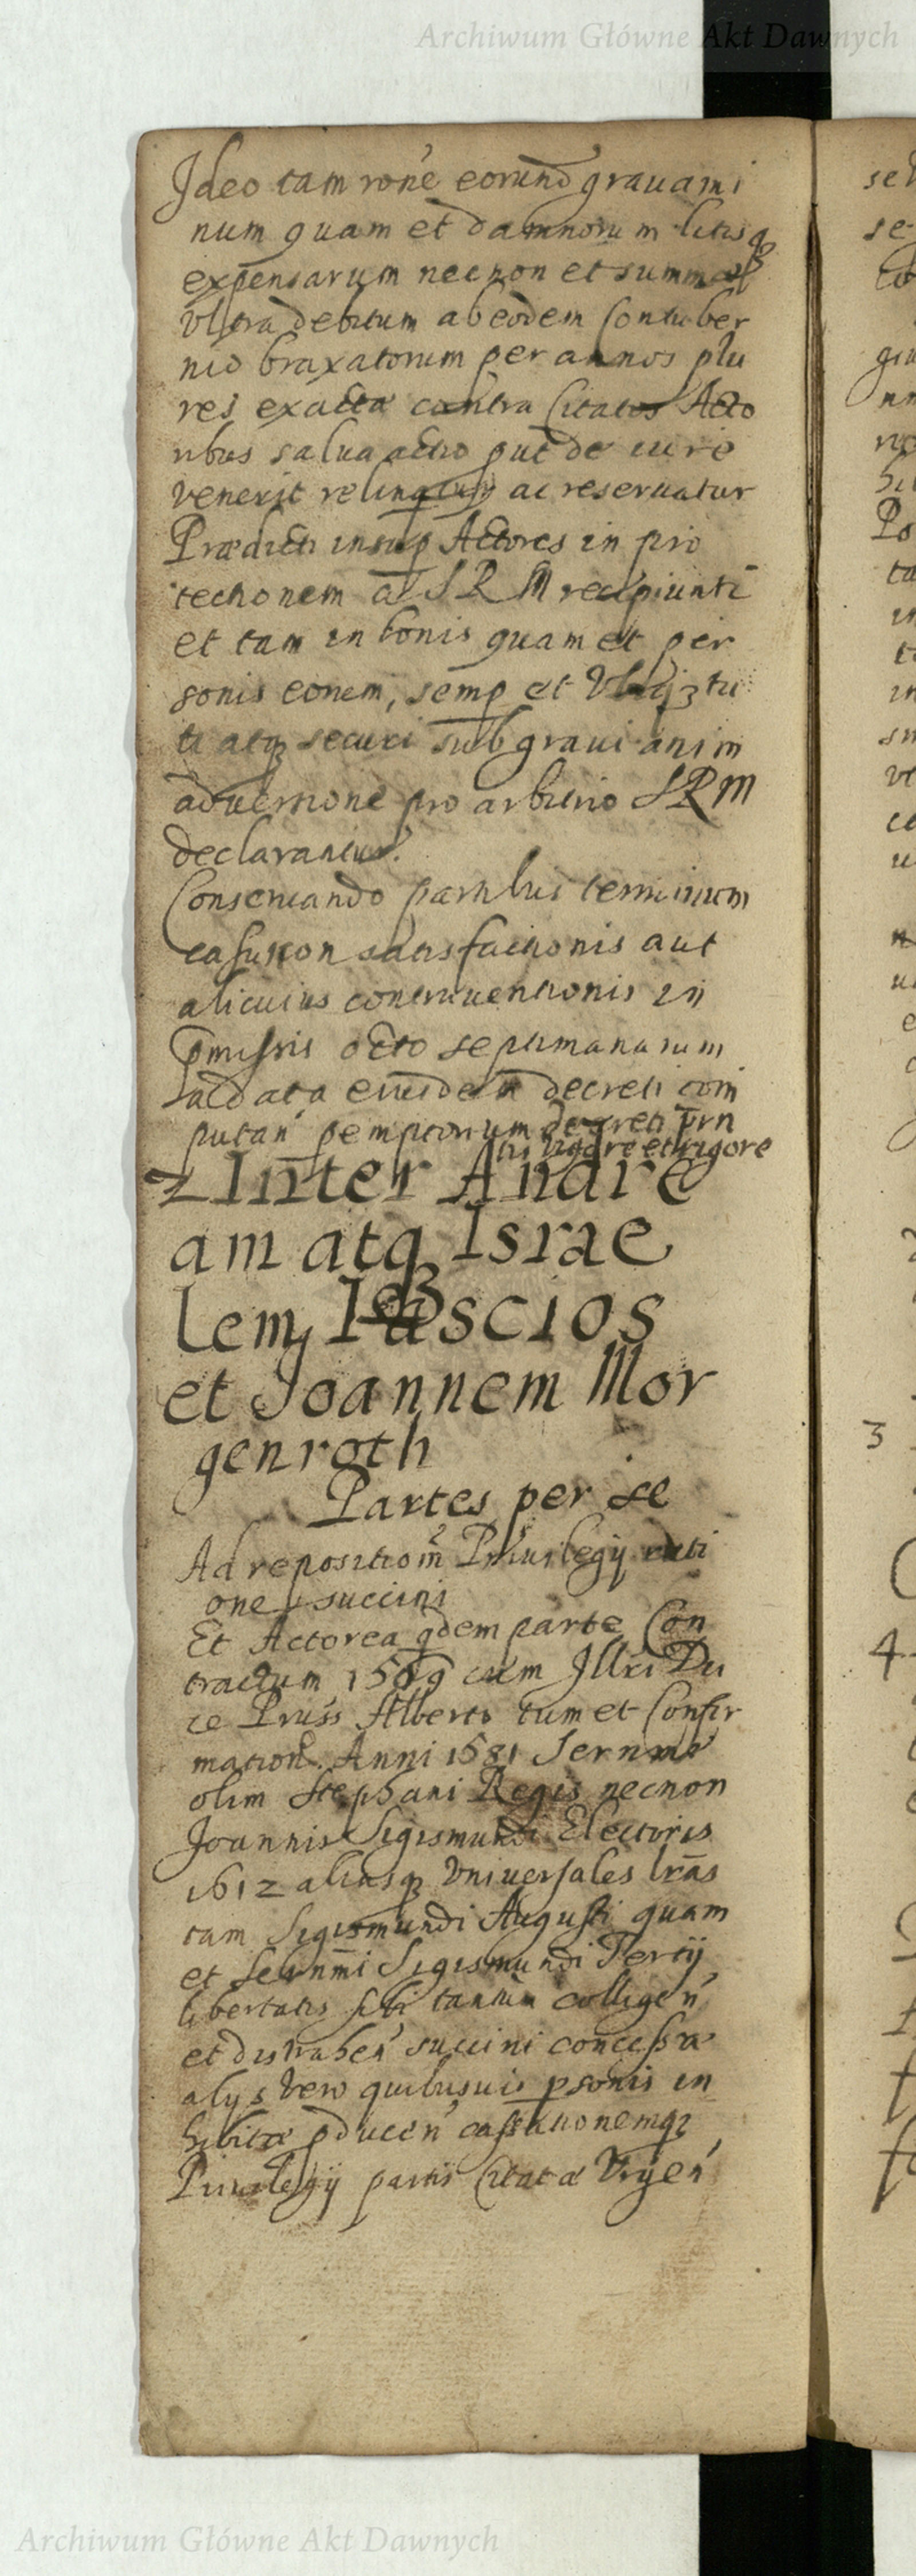 Archiwum Główne Akt Dawnych
Ideo tam rone eorund gravami
num quam et damnorum litisq
expensarum necnon et summae
Ultra debitum ab eodem Contuber
nio braxatorum per annos plu
res exacta contra Citatos Acto
ribus salva actio put de iure
venerit relinquitur ac reservatur
Prædicti insup Actores in pro
tectionem a S R M recipiunt
et tam in bonis quam et per
sonis eorum, semp et Ubiq tu
ti atq securi sub gravi anim
adversione pro arbitrio S R M
declarantur.
Conservando partibus terminum
casu non satisfactionis aut
alicuius contraventionis in
pmissis octo septimanarum
a data eiusdem decreti com
putan pemptorium decreti prn
tis vigore et rigore
Inter Andre
am atq Israe
lem Iascios
et Joannem Mor
genroth
Partes per se
Ad repositiom Privilegij rati
one succini
Et Actorea qdem parte Con
tractum 1569 cum Illri Du
ce Pruss Alberto tum et Confir
mation Anni 1581 Sernme
olim Stephani Regis necnon
Joannis Sigismundi Electoris
1612 aliasq Universales lras
tam Sigismundi Augusti quam
et Serenmi Sigismundi Tertij
libertatis sibi tantum colligen
et distrahen succini concessæ
alys vero quibusvis psonis in
hibitæ pducen cassationemq
Privilegij partis Citatæ Urgen
3
4
Archiwum Główne Akt Dawnych